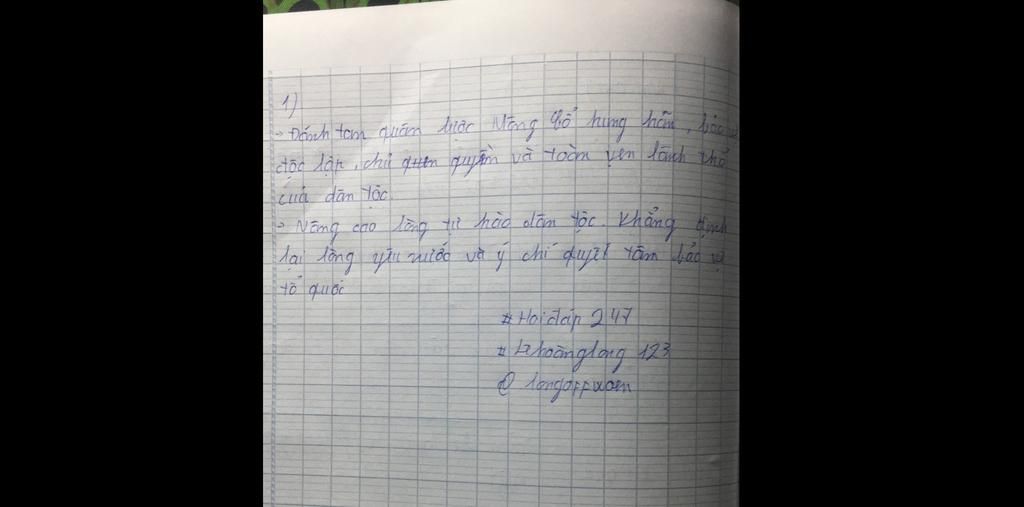 1)
→ Đánh tan quân lược Mông Cổ hung hãn, bảo vệ
độc lập, chủ quyền và toàn vẹn lãnh thổ
của dân tộc.
→ Nâng cao lòng tự hào dân tộc. Khẳng định
lại lòng yêu nước và ý chí quyết tâm bảo vệ
tổ quốc
# Hoidap 247
hoànglong 123
@